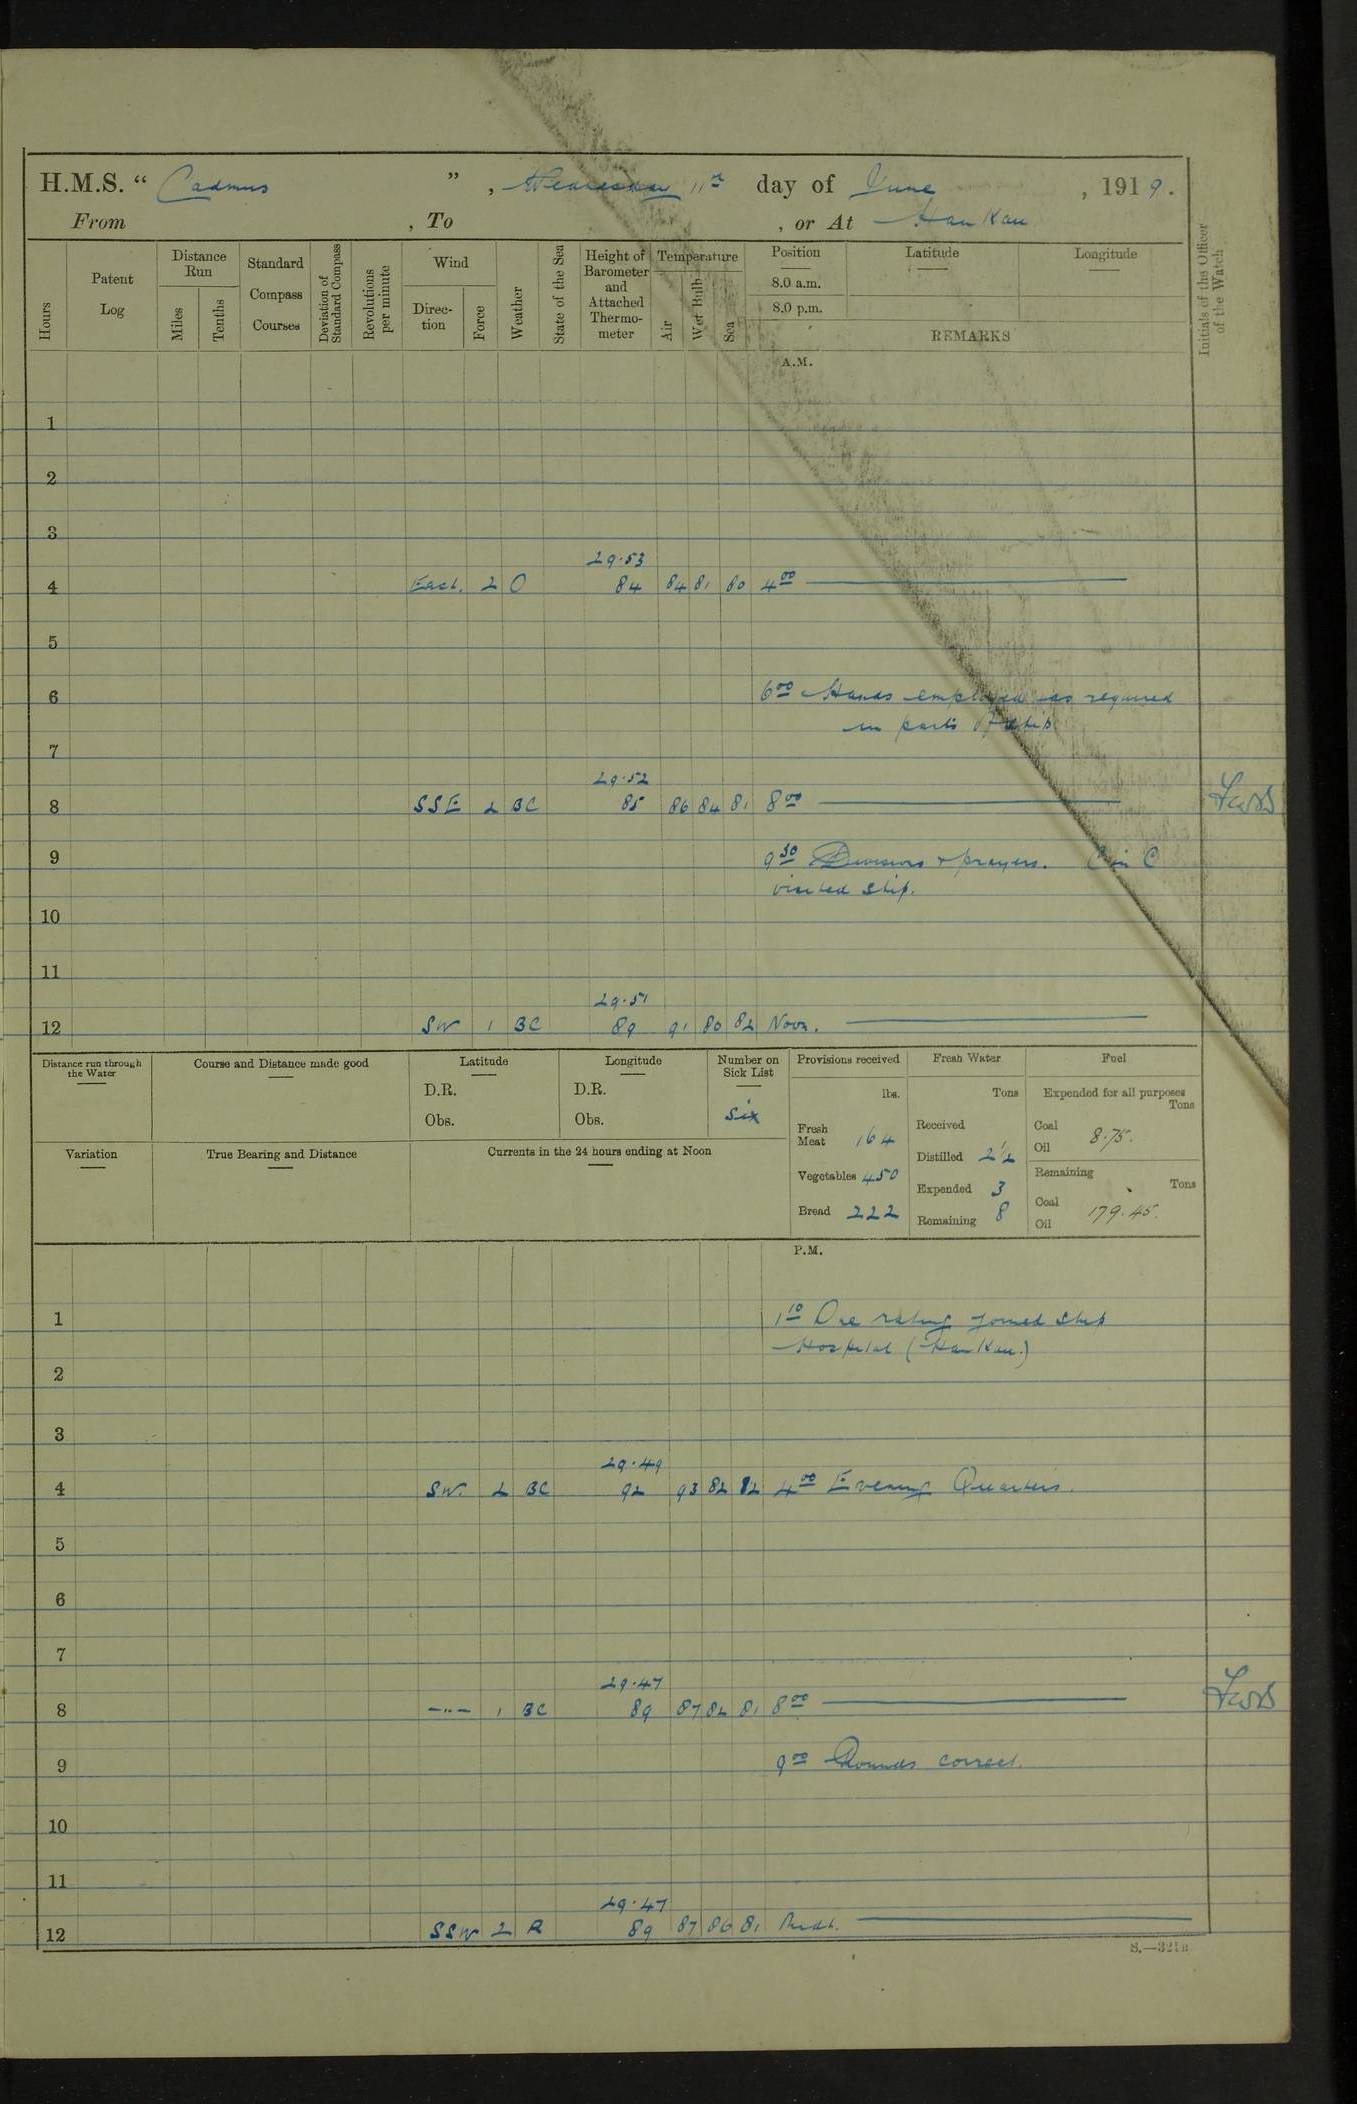 H.M.S. " Cadmus ", Wednesday 11th day of June, 1919.
From , To , or At Hankau
Hours
Patent Log
Distance Run
Miles
Tenths
Standard Compass Courses
Deviation of Standard Compass
Revolutions per minute
Wind
Direction
Force
Weather
State of the Sea
Height of Barometer and Attached Thermometer
Temperature
Air
Wet Bulb
Sea
Position
8.0 a.m.
8.0 p.m.
Latitude
Longitude
REMARKS
Initials of the Officer of the Watch
A.M.
1
2
3
29.53
4 East. 2 O 84 84 81 80 4 00
5
6 6 00 Hands employed as required
in parts of ship
7
29.52
8 SSE 2 BC 85 86 84 81 8 00
9 9 30 Divisions & prayers. C in C
visited ship.
10
11
29.51
12 SW 1 BC 89 91 80 82 Noon.
Distance run through the Water
Course and Distance made good
Latitude
D.R.
Obs.
Longitude
D.R.
Obs.
Number on Sick List
Six
Provisions received
lbs.
Fresh Meat 164
Vegetables 450
Bread 222
Fresh Water
Tons
Received
Distilled 2 1/2
Expended 3
Remaining 8
Fuel
Expended for all purposes
Tons
Coal 8.75.
Oil
Remaining
Tons
Coal 179.45.
Oil
Variation
True Bearing and Distance
Currents in the 24 hours ending at Noon
P.M.
1 1 10 One rating joined ship
Hospital (Hankau.)
2
3
29.49
4 SW. 2 BC 92 93 82 82 4 00 Evening Quarters.
5
6
7
29.47
8 -"- 1 BC 89 87 82 81 8 00
9 9 00 Rounds correct.
10
11
29.47
12 SSW 2 R 89 87 86 81 Midt.
S.—321B